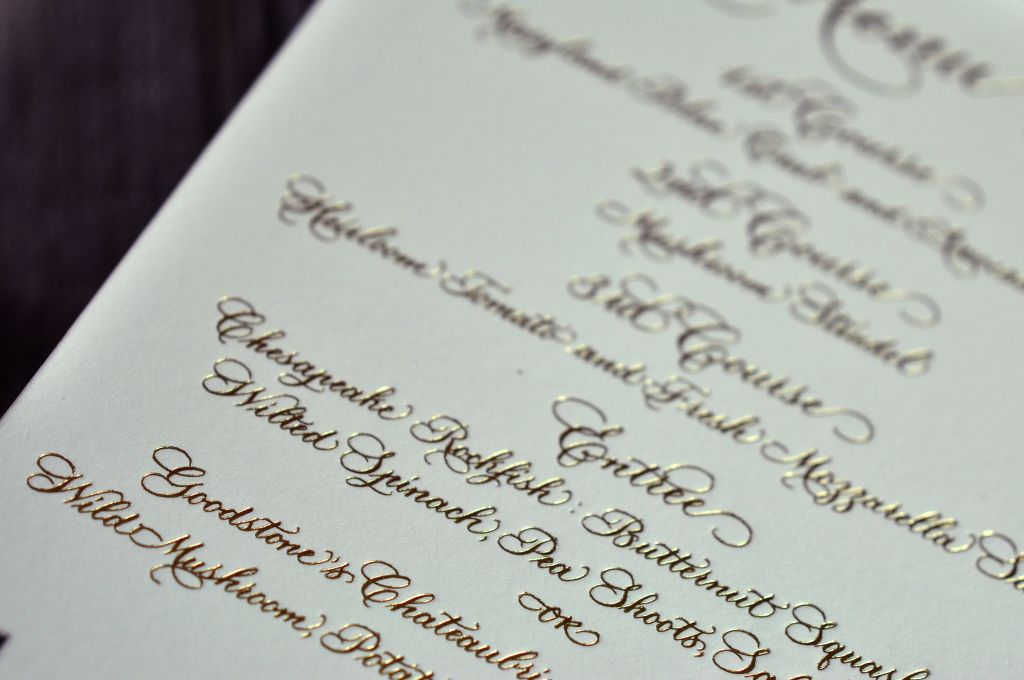 Menu
1st Course
Maryland Blue Crab and
2nd Course
Mushroom Strudel
3rd Course
Heirloom Tomato and Fresh Mozzarella
Entree
Chesapeake Rockfish: Butternut Squash
Wilted Spinach, Pea Shoots,
OR
Goodstone's
Wild Mushroom,